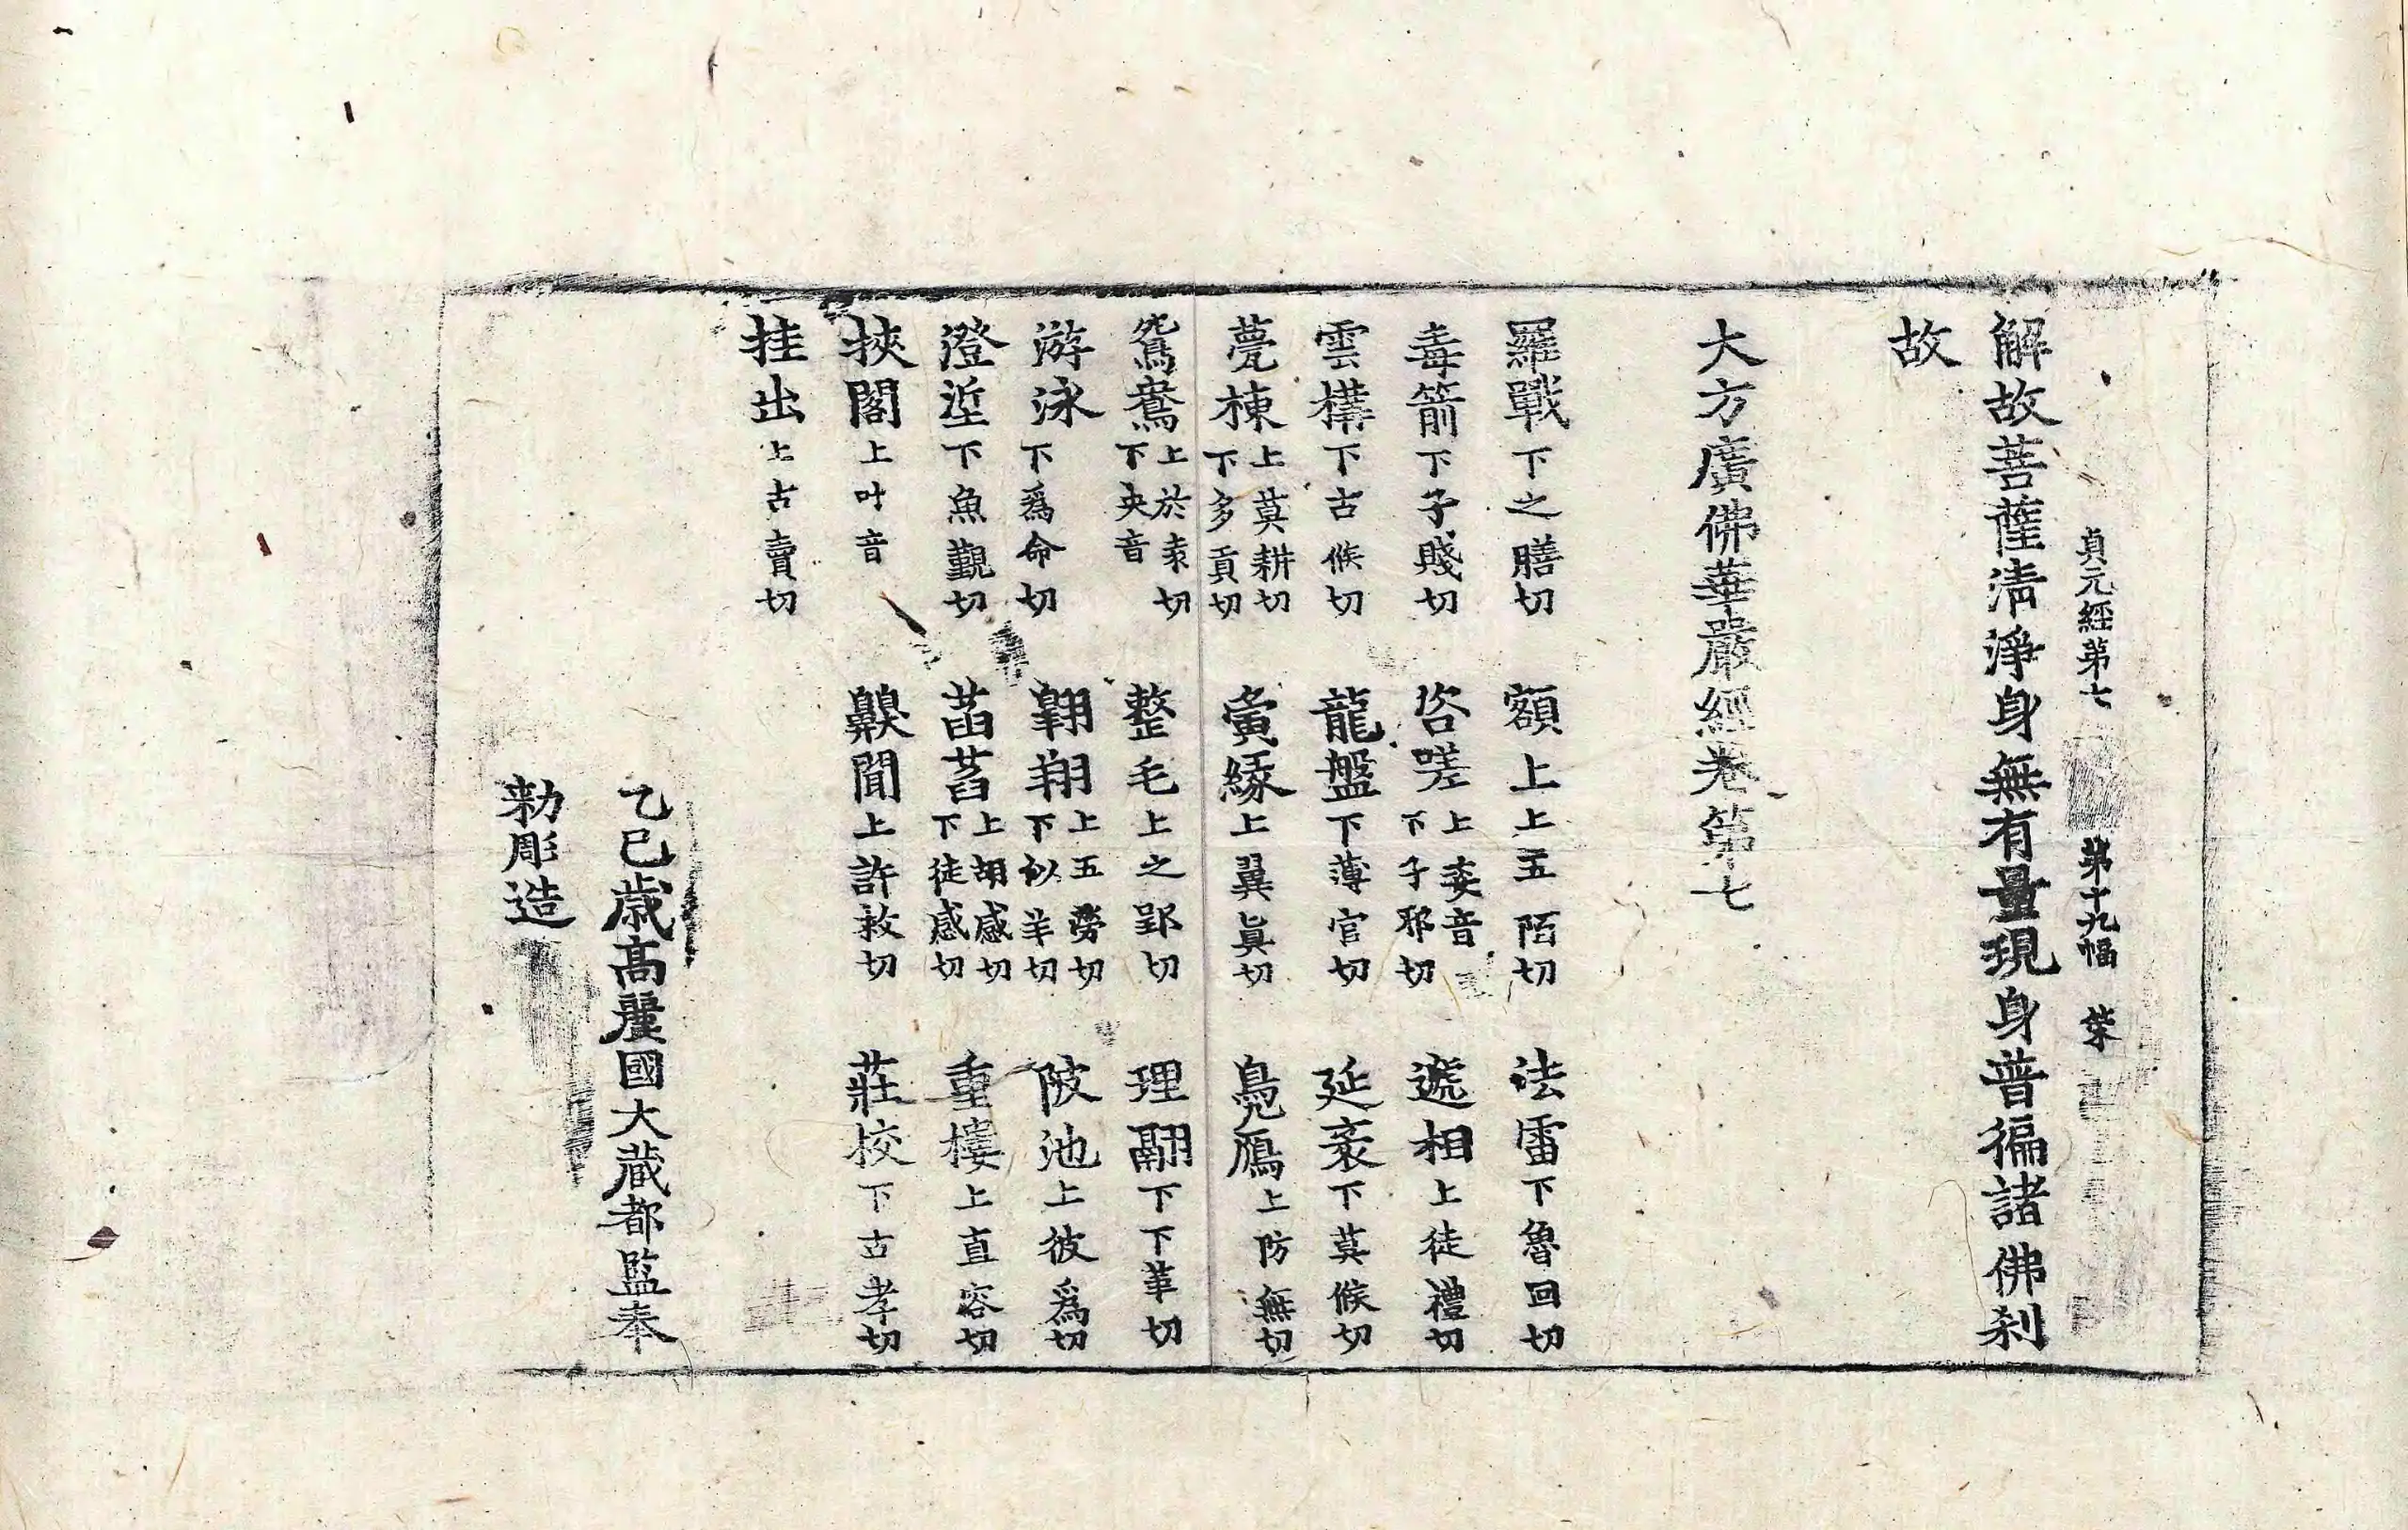 貞元經第七 第十九幅 業
解故菩薩淸淨身無有量現身普徧諸佛刹
故
大方廣佛華嚴經卷第七
羅戰下之膳切 額上上五陌切 法雷下魯回切
毒箭下子賤切 咨嗟上姿音下子耶切 遞相上徒禮切
雲構下古候切 龍盤下薄官切 延袤下莫候切
甍棟上莫耕切下多貢切 夤緣上翼眞切 鳧鴈上防無切
鴛鴦上於袁切下央音 整毛上之郢切 理翮下下革切
游泳下爲命切 翱翔上五勞切下似羊切 陂池上彼爲切
澄垽下魚覲切 菡萏上胡感切下徒感切 重樓上直容切
挾閣上叶音 齅聞上許救切 莊校下古孝切
挂出上古賣切
乙巳歲高麗國大藏都監奉
勅彫造